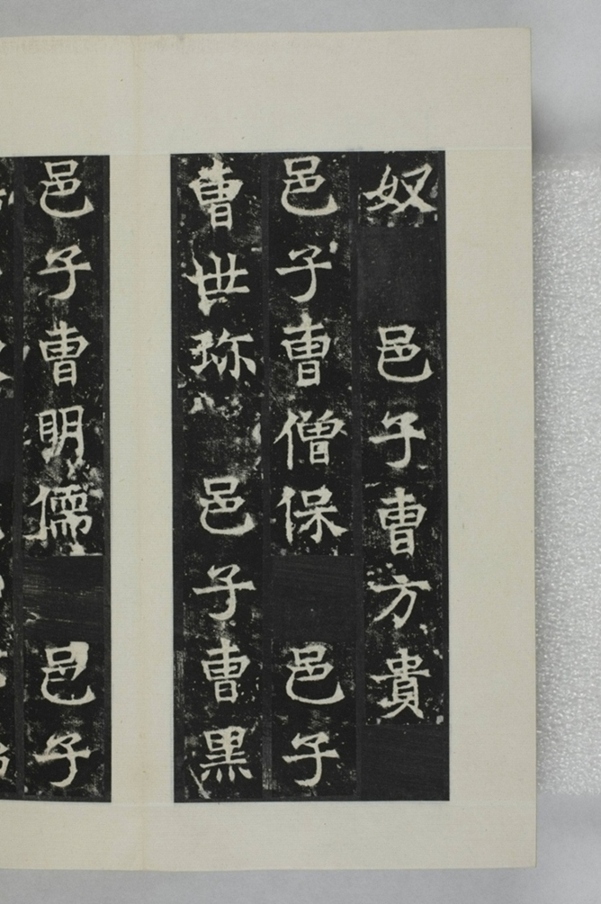 奴　邑子曹方貴
邑子曹僧保　邑子
曹世珎　邑子曹黑
邑子曹明儒　邑子